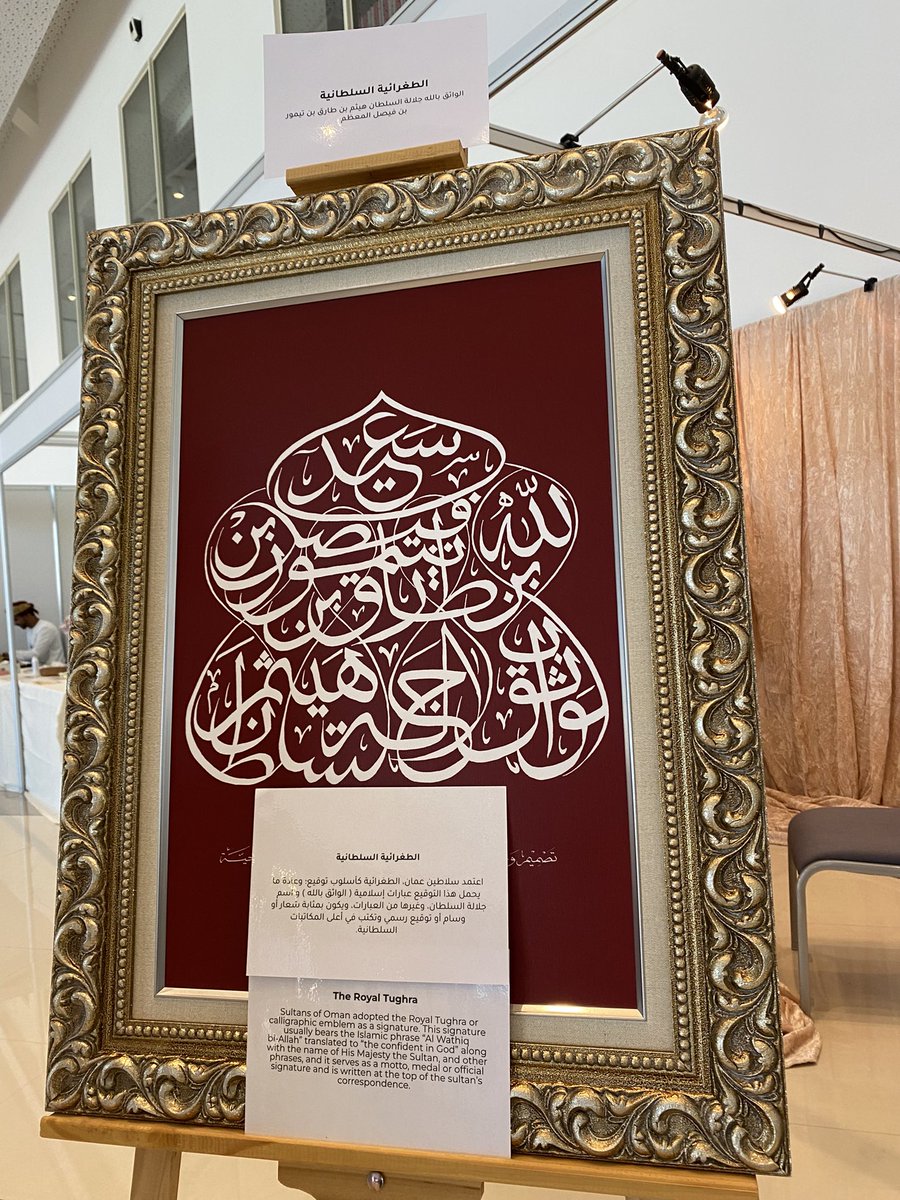 الطغرائية السلطانية
الواثق بالله جلالة السلطان هيثم بن طارق بن تيمور
بن فيصل المعظم
الواثق بالله جلالة السلطان هيثم بن طارق بن تيمور بن فيصل بن سعيد
تصميم
الطغرائية السلطانية
اعتمد سلاطين عمان، الطغرائية كأسلوب توقيع؛ وعادة ما
يحمل هذا التوقيع عبارات إسلامية ( الواثق بالله ) و اسم
جلالة السلطان، وغيرها من العبارات، ويكون بمثابة شعار أو
وسام أو توقيع رسمي وتكتب في أعلى المكاتبات
السلطانية.
The Royal Tughra
Sultans of Oman adopted the Royal Tughra or
calligraphic emblem as a signature. This signature
usually bears the Islamic phrase "Al Wathiq
bi-Allah" translated to "the confident in God" along
with the name of His Majesty the Sultan, and other
phrases, and it serves as a motto, medal or official
signature and is written at the top of the sultan's
correspondence.